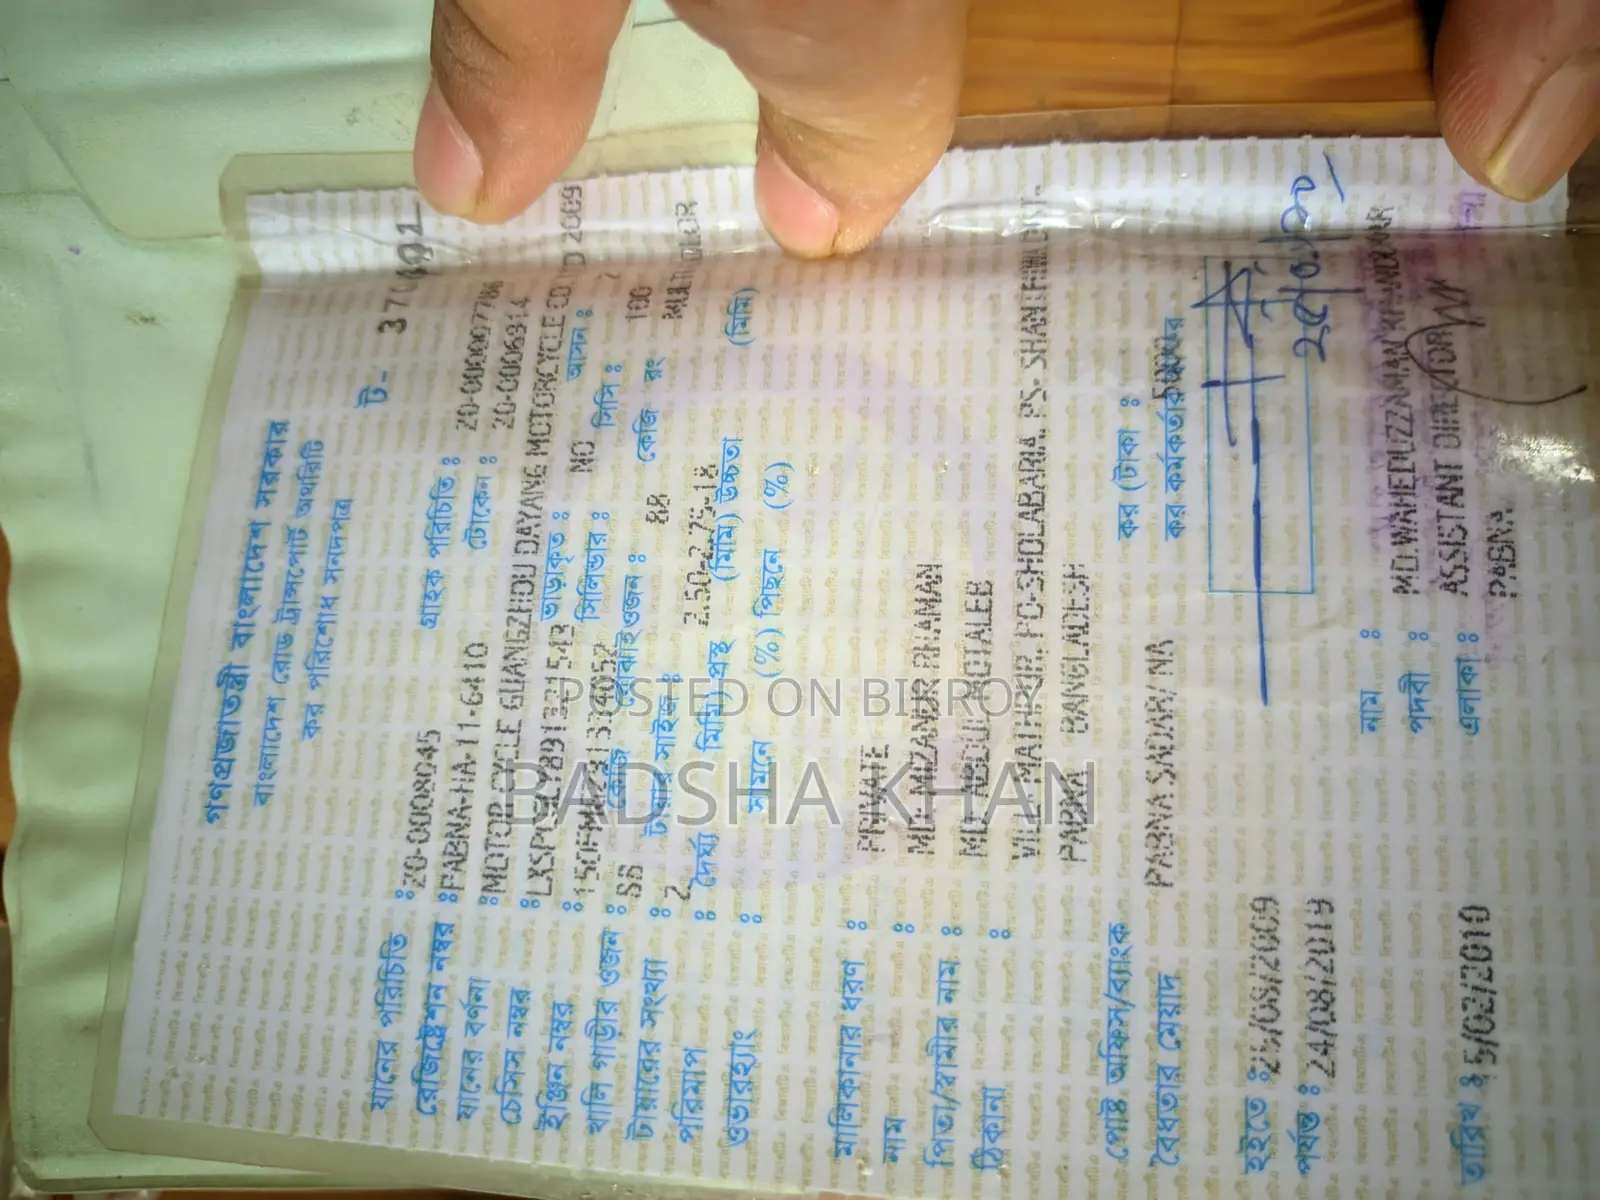 গণপ্রজাতন্ত্রী বাংলাদেশ সরকার
বাংলাদেশ রোড ট্রান্সপোর্ট অথরিটি
কর পরিশোধ সনদপত্র
ট-
যানের পরিচিতি : 20-0008045 গ্রাহক পরিচিতি : 20-000007786
রেজিষ্ট্রেশন নম্বর : PABNA-HA-11-6410 টোকেন : 20-0006914
যানের বর্ণনা : MOTOR CYCLE GUANGZHOU DAYANG MOTORCYCLE CO 2009
চেসিস নম্বর : ভাড়াকৃত : NO আসন :
ইঞ্জিন নম্বর : সিলিন্ডার : সিসি : 100
খালি গাড়ীর ওজন : 88 কেজি বোঝাই ওজন : 88 কেজি রং
টায়ারের সংখ্যা : 2 টায়ার সাইজ : 2.50-2.75-18
পরিমাপ : দৈর্ঘ্য (মিমি) প্রস্থ (মিমি) উচ্চতা (মিমি)
ওভারহ্যাং : সামনে (%) পিছনে (%)
মালিকানার ধরণ : PRIVATE
নাম : MD. MIZANUR RHAMAN
পিতা/স্বামীর নাম : MD. ABDUL MOTALEB
ঠিকানা :
PABNA BANGLADESH
পোষ্ট অফিস/ব্যাংক PABNA SADAR
কর (টাকা :
বৈধতার মেয়াদ
কর কর্মকর্তার
হইতে : 25/08/2009
পর্যন্ত : 24/08/2019
নাম : MD.WAHEDUZZAMAN KHANDKAR
পদবী : ASSISTANT DIRECTOR
তারিখ : 5/02/2010 এলাকা : PABNA
POSTED ON BIKROY
BADSHA KHAN